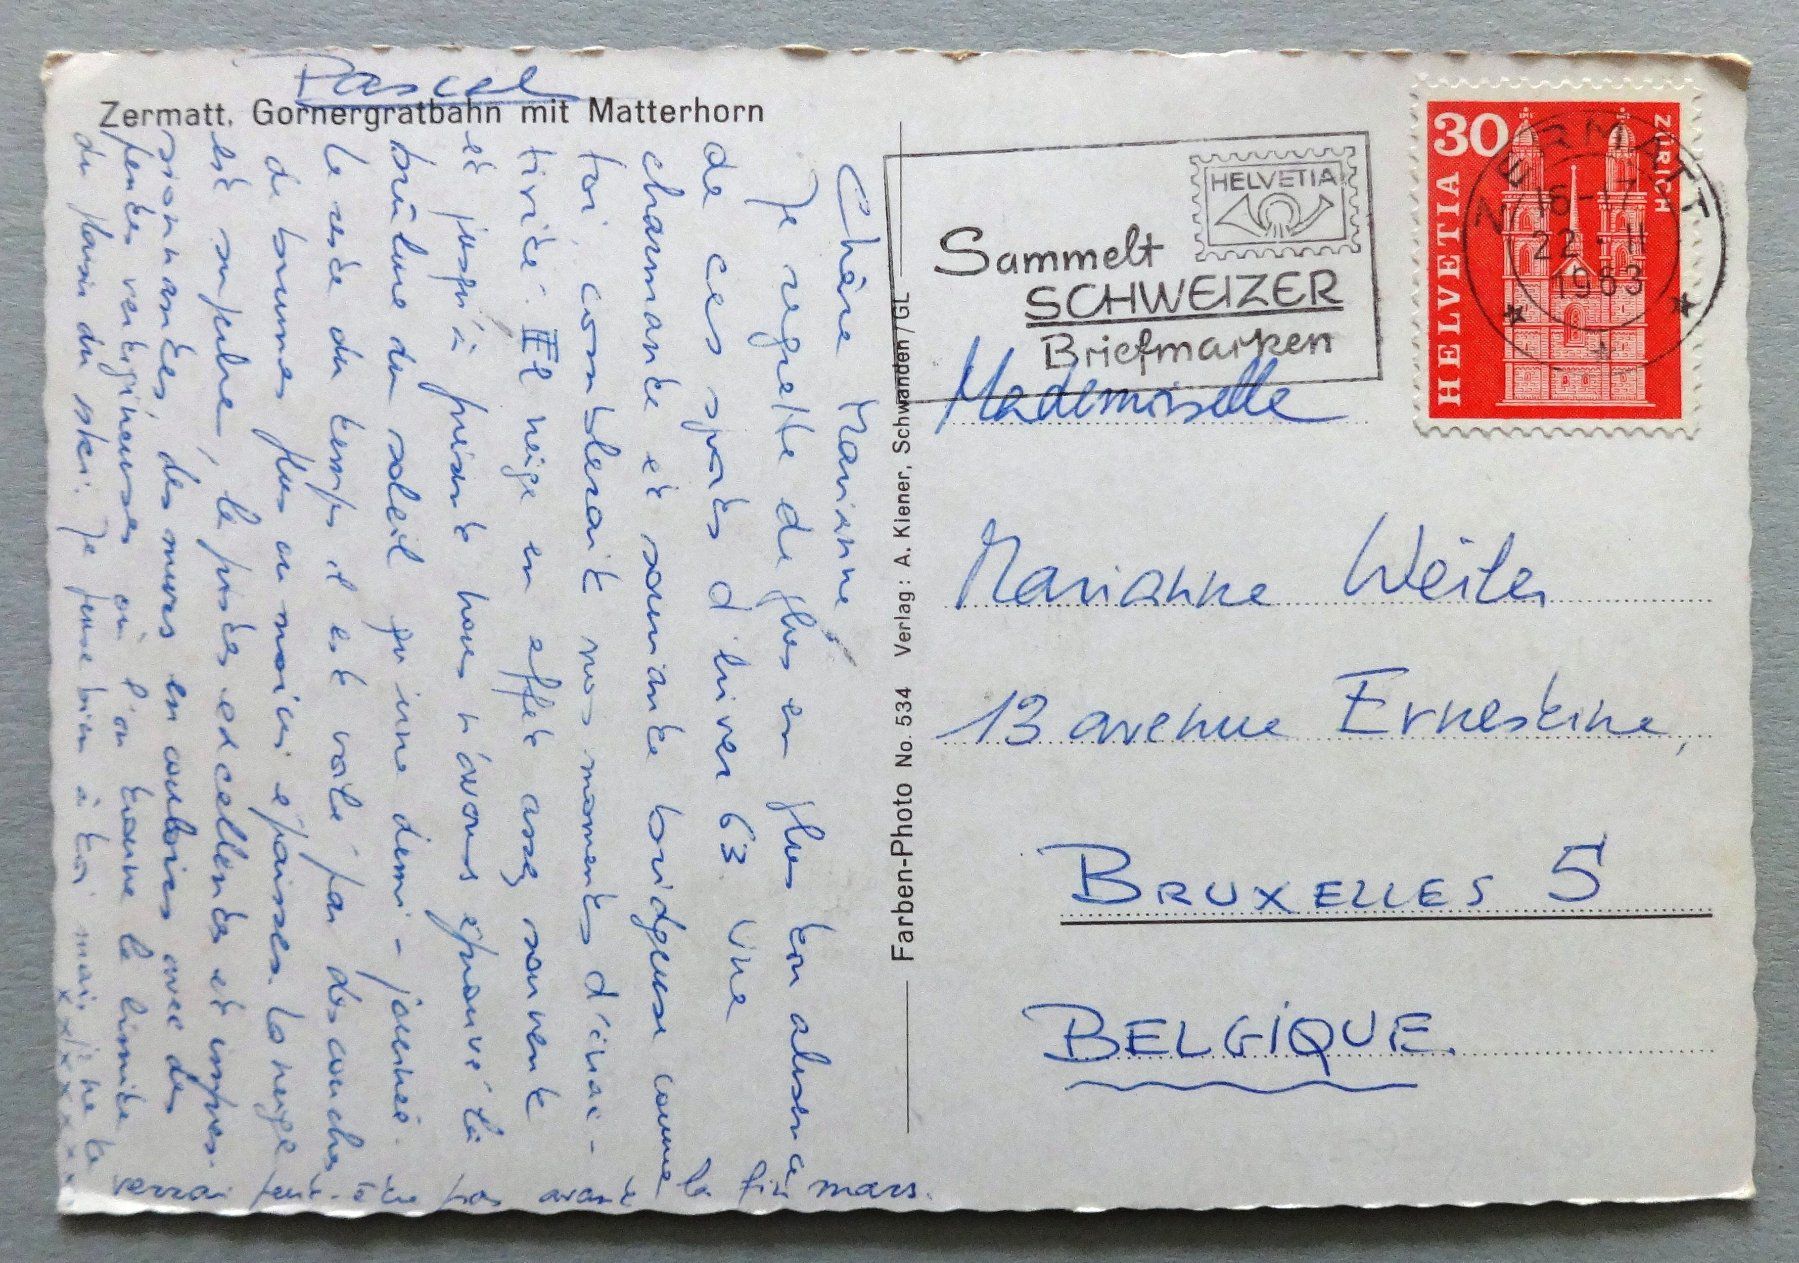 Zermatt. Gornergratbahn mit Matterhorn
Pascal
Chère Marianne
Je regrette de plus en plus ton absence
de ces sports d'hiver 63 Une
charmante et souriante bridgeuse comme
toi, comblerait nos moments d'inac-
tivité. Il neige en effet assez souvent
et jusqu'à présent nous n'avons éprouvé la
brûlure du soleil qu'une demi-journée.
Le reste du temps il est voilé par des couches
de brumes plus ou moins épaisses. La neige
est superbe, les pistes excellentes et impres-
sionnantes, des murs en couloirs avec des
pentes vertigineuses où l'on trouve la limite
du plaisir du ski. Je pense bien à toi mais je ne te
verrai peut-être pas avant la fin mars.
x x x x x x x
Farben-Photo No. 534 Verlag: A. Kiener, Schwanden/GL
HELVETIA
Sammelt
SCHWEIZER
Briefmarken
30
HELVETIA
ZÜRICH
ZERMATT
16-17
22-II
1963
Mademoiselle
Marianne Weiler
13 avenue Ernestine,
BRUXELLES 5
BELGIQUE.